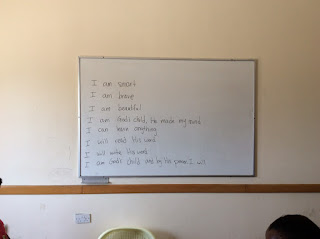 I am smart
I am brave
I am beautiful
I am God's child, He made my
I can learn anything
I will read His word
I will write His word
I am God's child and by his power I will